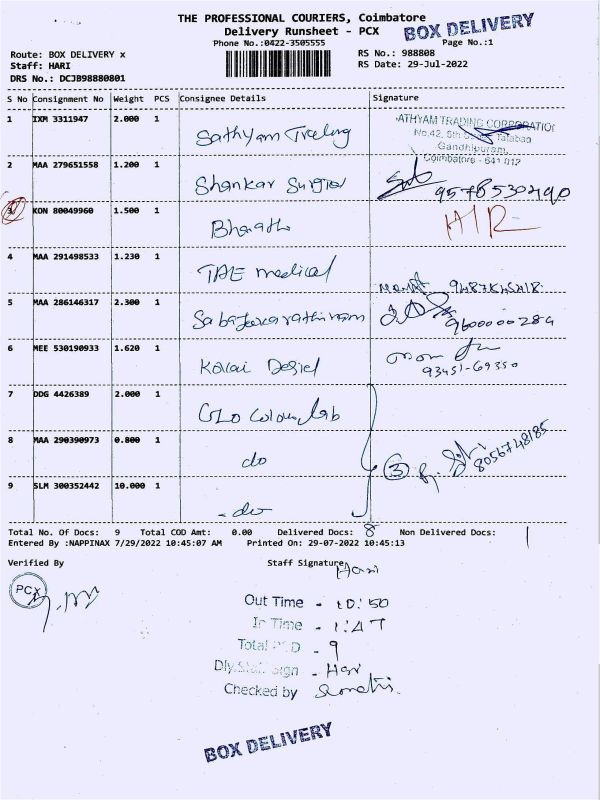 THE PROFESSIONAL COURIERS, Coimbatore
Delivery Runsheet - PCX
BOX DELIVERY
Phone No.:0422-3505555
Page No.:1
Route: BOX DELIVERY x
RS No.: 988808
Staff: HARI
RS Date: 29-Jul-2022
DRS No.: DCJB98880801
S No Consignment No Weight PCS Consignee Details Signature
1 IXM 3311947 2.000 1
ATHYAM TRADING CORPORATION
No.42, 5th
Gandhipuram,
Coimbatore - 641 012
2 MAA 279651558 1.200 1 Shankar Surgical
3 KON 80049960 1.500 1 Bharath
4 MAA 291498533 1.230 1 TAE medical
5 MAA 286146317 2.300 1
9600000284
6 MEE 530190933 1.620 1
93451-69350
7 DDG 4426389 2.000 1 GLO Colour lab
8 MAA 290390973 0.800 1 do
3
8056748185
9 SLM 300352442 10.000 1 - do -
Total No. Of Docs: 9 Total COD Amt: 0.00 Delivered Docs: 8 Non Delivered Docs: 1
Entered By :NAPPINAX 7/29/2022 10:45:07 AM Printed On: 29-07-2022 10:45:13
Verified By Staff Signature Hari
PCX
Out Time - 10:50
In Time - 1:47
Total - 9
Dly.Staff Sign - Hari
Checked by
BOX DELIVERY